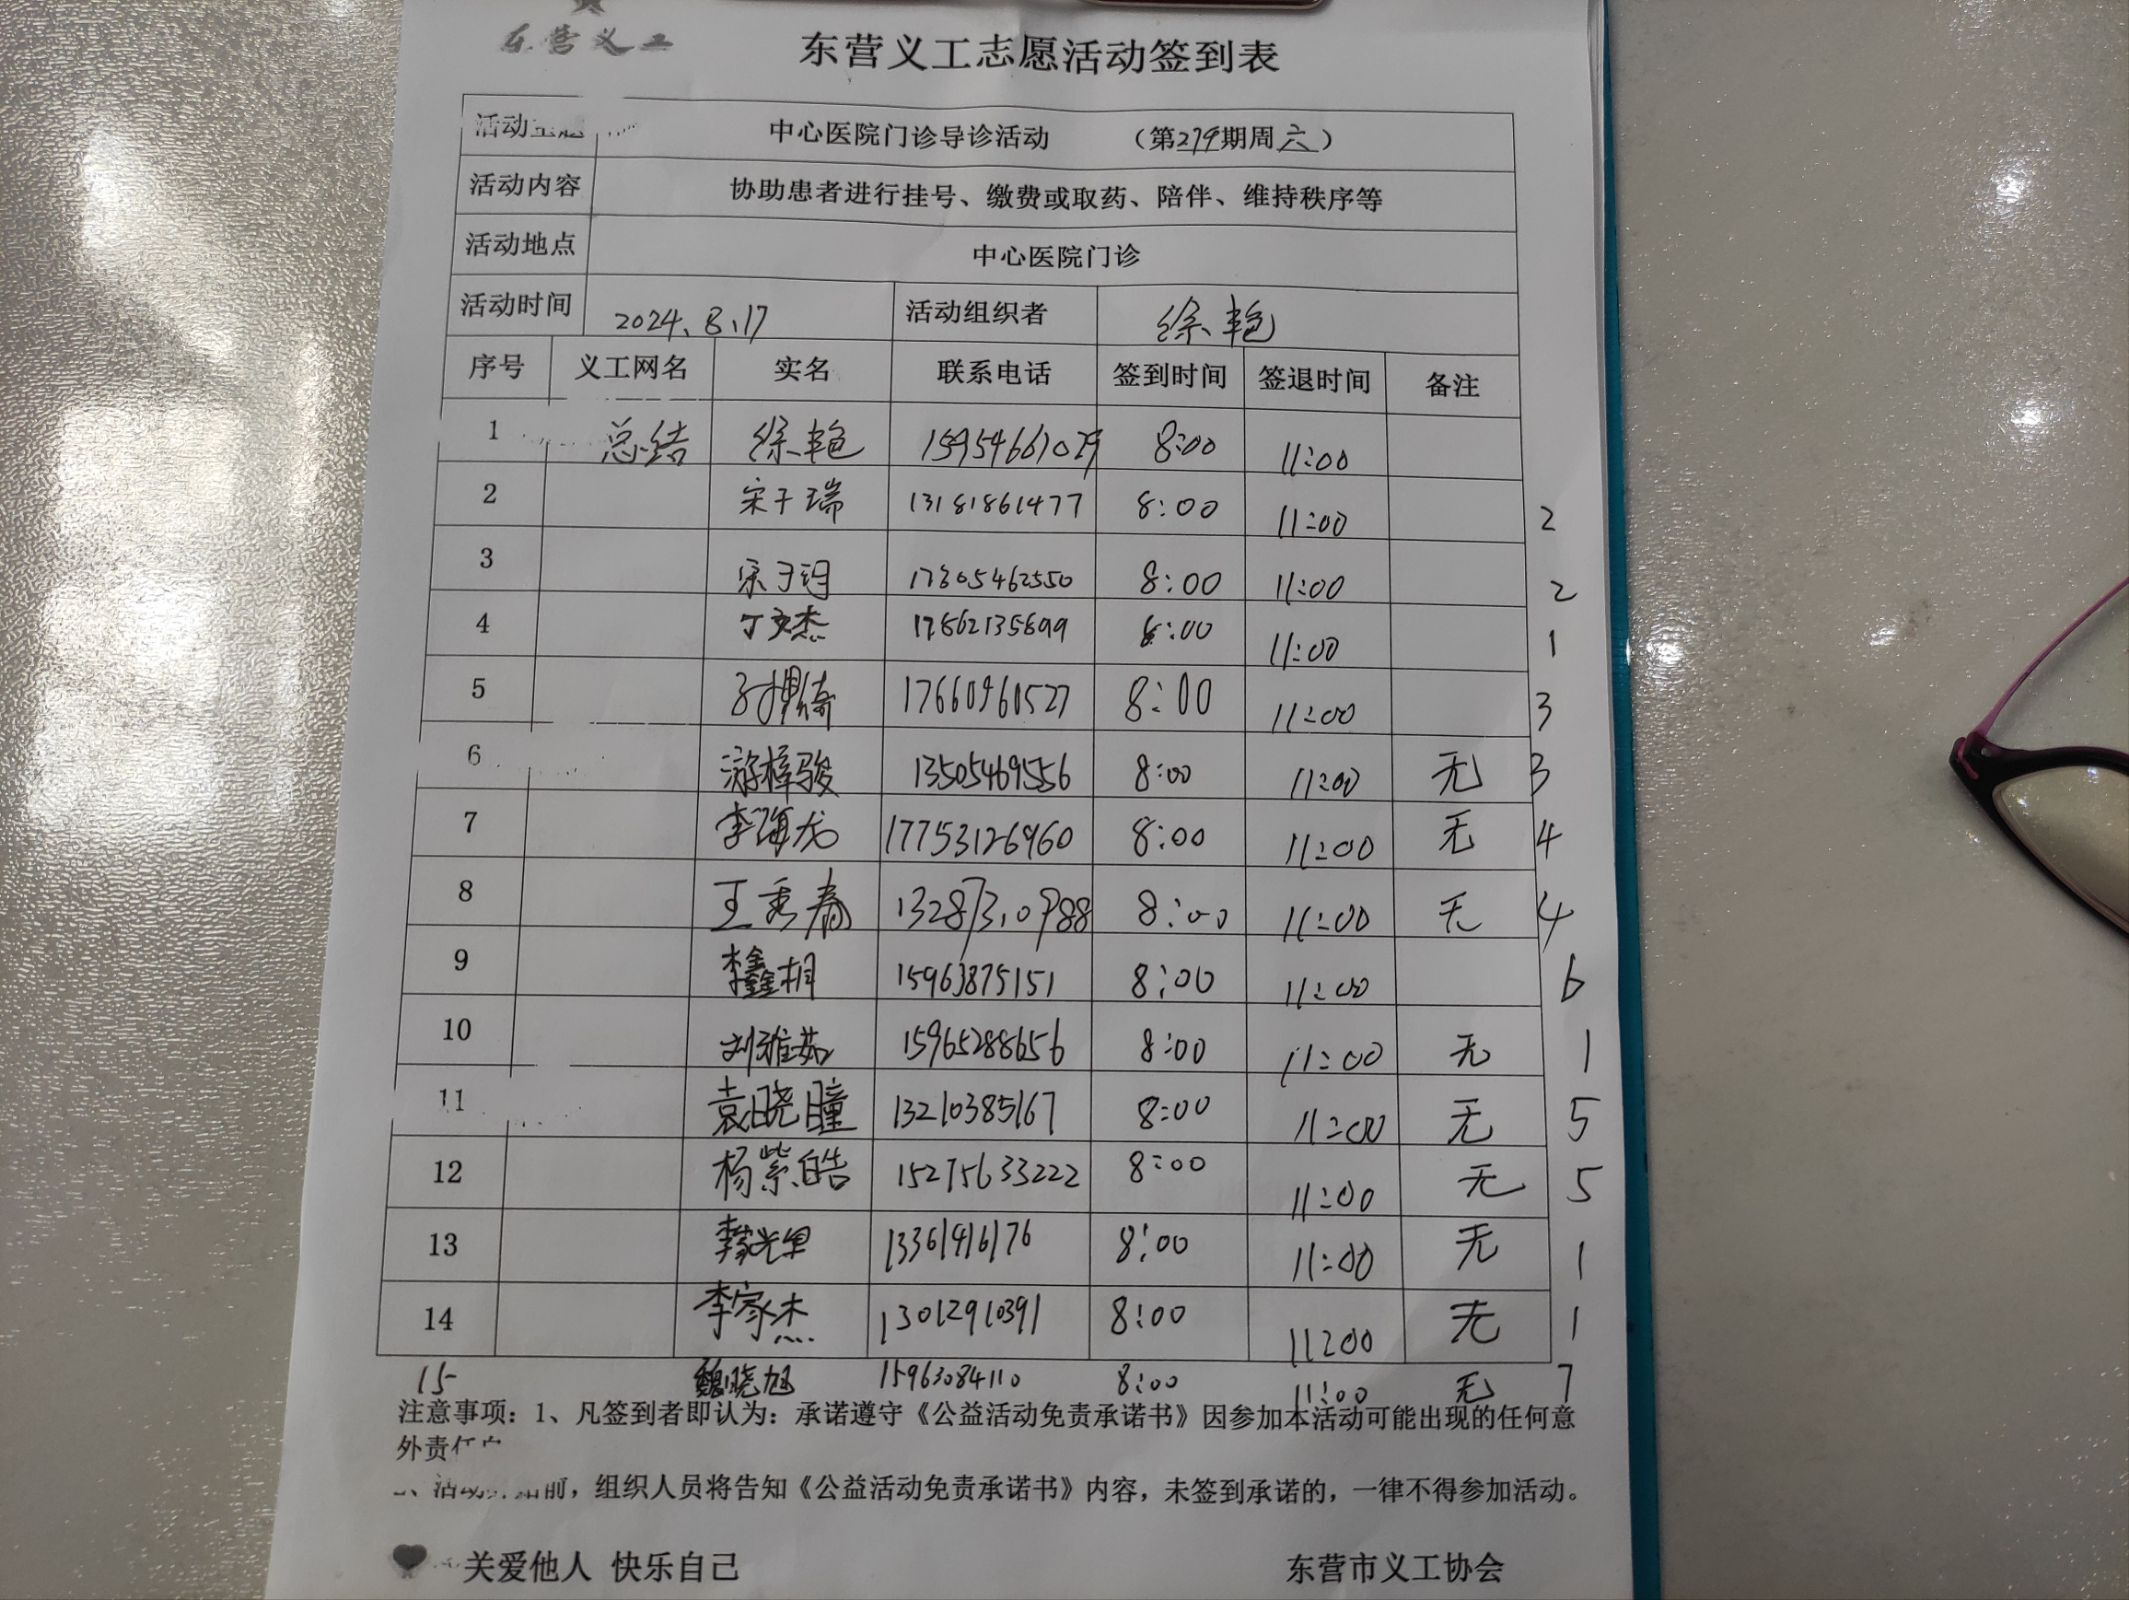 东营义工
东营义工志愿活动签到表
活动主题 中心医院门诊导诊活动 （第279期周六）
活动内容 协助患者进行挂号、缴费或取药、陪伴、维持秩序等
活动地点 中心医院门诊
活动时间 2024、8、17 活动组织者 徐艳
序号 义工网名 实名 联系电话 签到时间 签退时间 备注
1 总结 徐艳 15954661029 8:00 11:00
2 宋于瑞 13181861477 8:00 11:00 2
3 宋于 17305462550 8:00 11:00 2
4 丁文杰 17862135699 8:00 11:00 1
5 17660960527 8:00 11:00 3
6 游梓骏 13505469556 8:00 11:00 无 3
7 李海龙 17753126960 8:00 11:00 无 4
8 王秀春 13287310988 8:00 11:00 无 4
9 李鑫桐 15963875151 8:00 11:00 6
10 刘雅茹 15965288656 8:00 11:00 无 1
11 袁晓瞳 13210385167 8:00 11:00 无 5
12 杨紫皓 15275633222 8:00 11:00 无 5
13 13361416176 8:00 11:00 无 1
14 李家杰 13012910391 8:00 11:00 无 1
15 魏晓旭 15963084110 8:00 11:00 无 7
注意事项：1、凡签到者即认为：承诺遵守《公益活动免责承诺书》因参加本活动可能出现的任何意
外责任
、活动 前，组织人员将告知《公益活动免责承诺书》内容，未签到承诺的，一律不得参加活动。
关爱他人 快乐自己 东营市义工协会